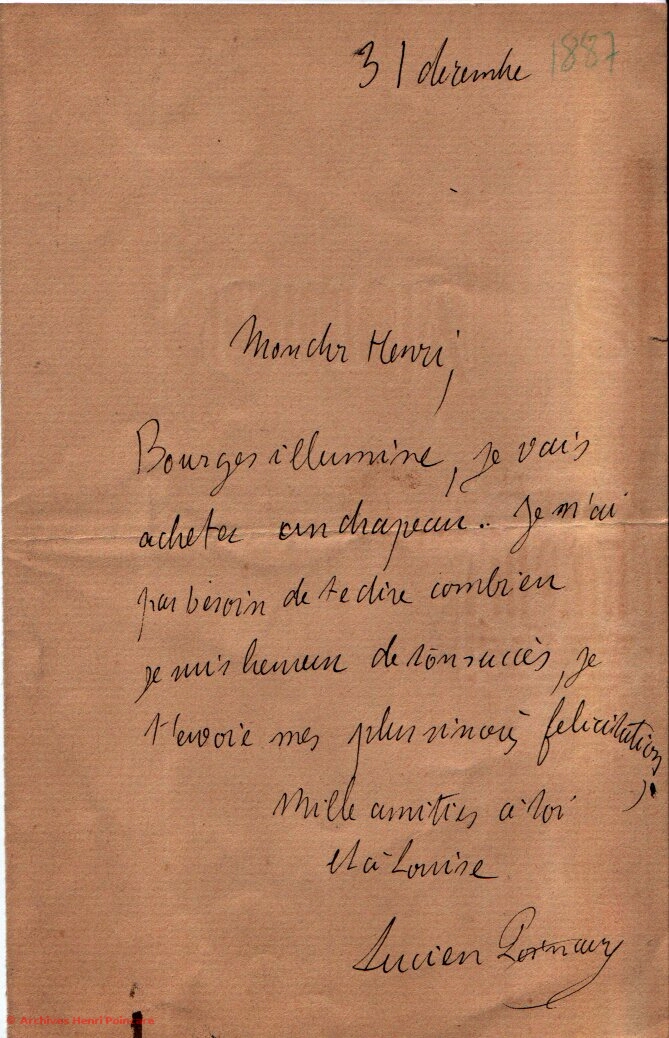 31 décembre 1887
Mon cher Henri,
Bourges illumine, je vais
acheter un chapeau.. Je n'ai
pas besoin de te dire combien
je suis heureux de ton succès, je
t'envoie mes plus sincères félicitations,
Mille amitiés à toi
et à Louise
Lucien Poincaré
© Archives Henri Poincaré